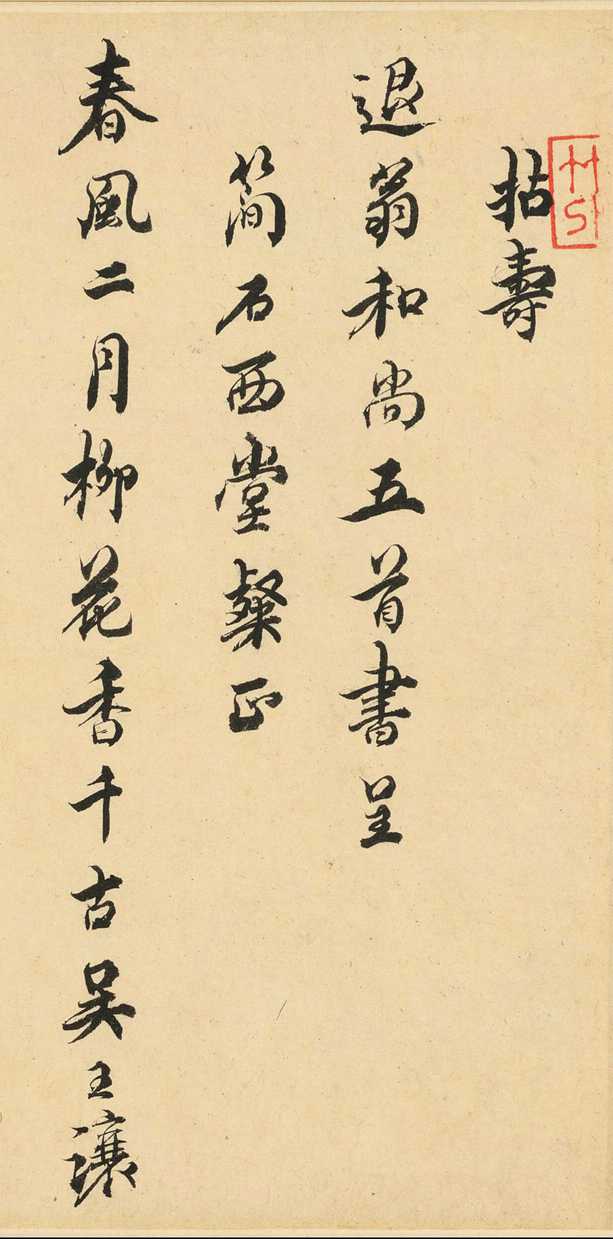 壽
退翁和尚五首書呈
簡石西堂粲正
春風二月柳花香千古吳王讓